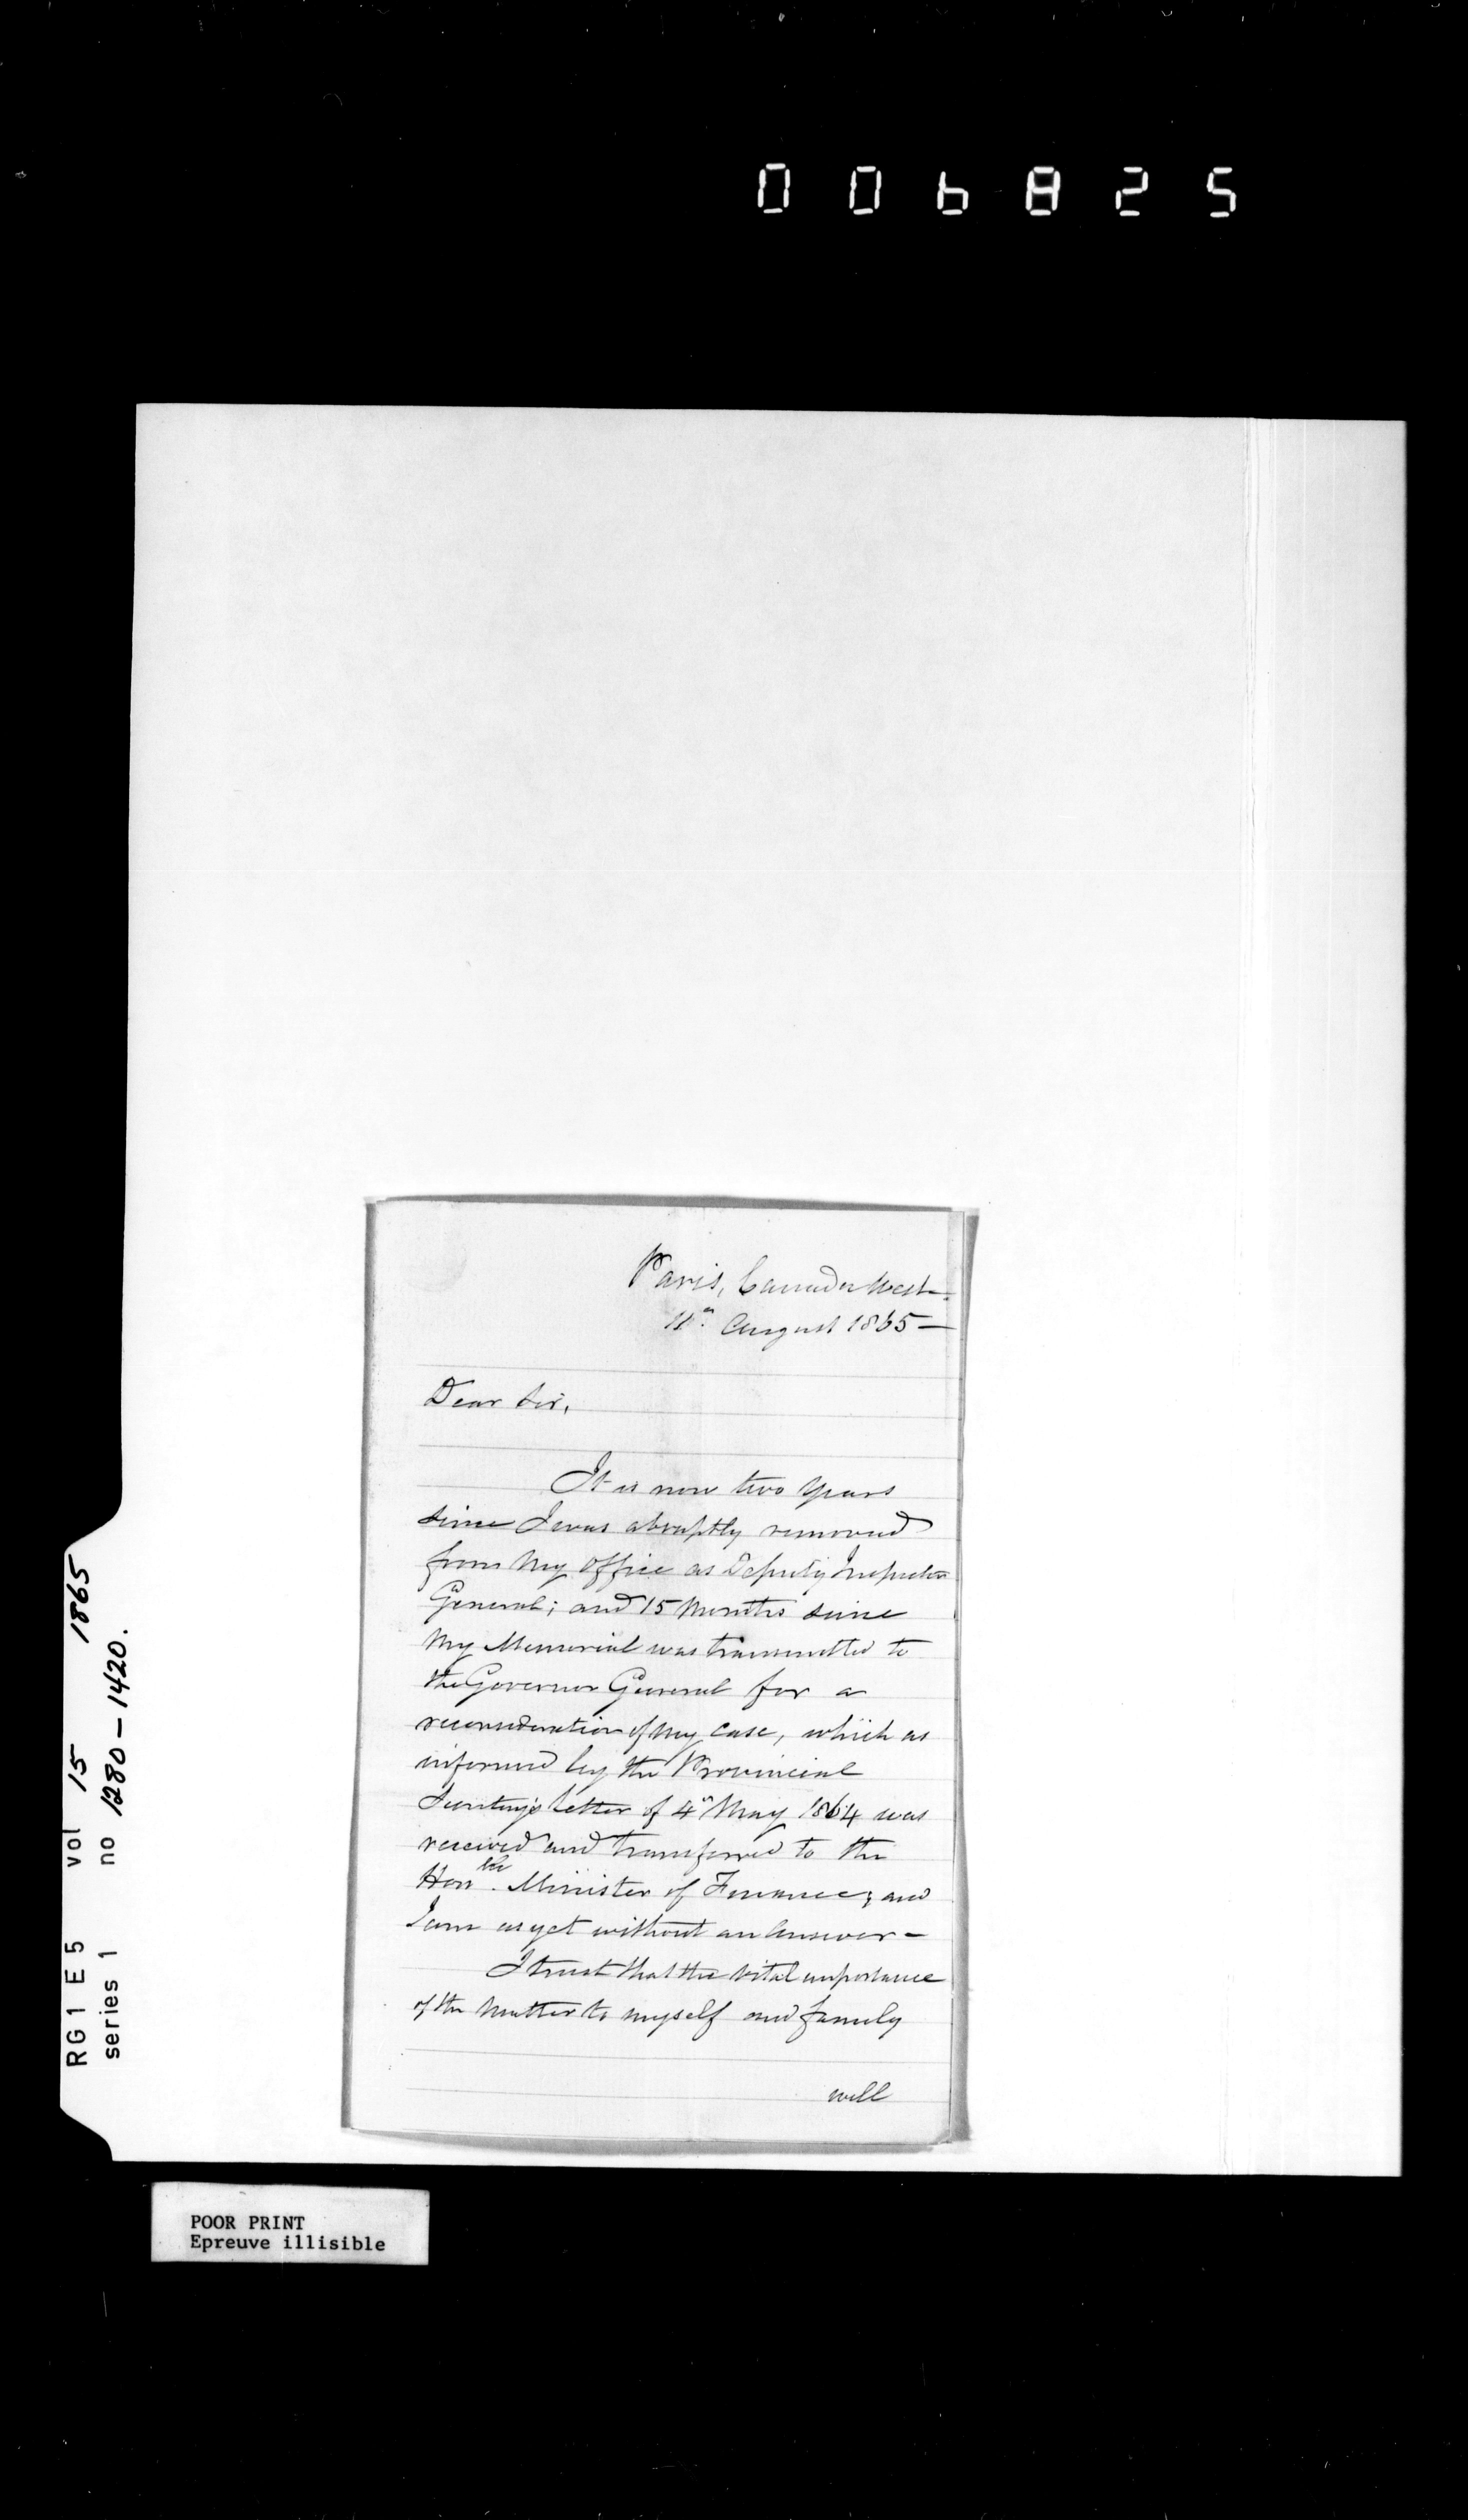 006825
Paris, Canada West.
11th August 1865 —
Dear Sir,
It is now two years
since I was abruptly removed
from my office as Deputy Inspector
General; and 15 Months since
my Memorial was transmitted to
the Governor General for a
reconsideration of my case, which as
informed by the Provincial
Secretary's letter of 4th May 1864 was
received and transferred to the
Honble. Minister of Finance; and
I am as yet without an answer —
I trust that the vital importance
of the matter to myself and family
will
RG 1 E 5 vol 15 1865
series 1 no 1280-1420.
POOR PRINT
Epreuve illisible